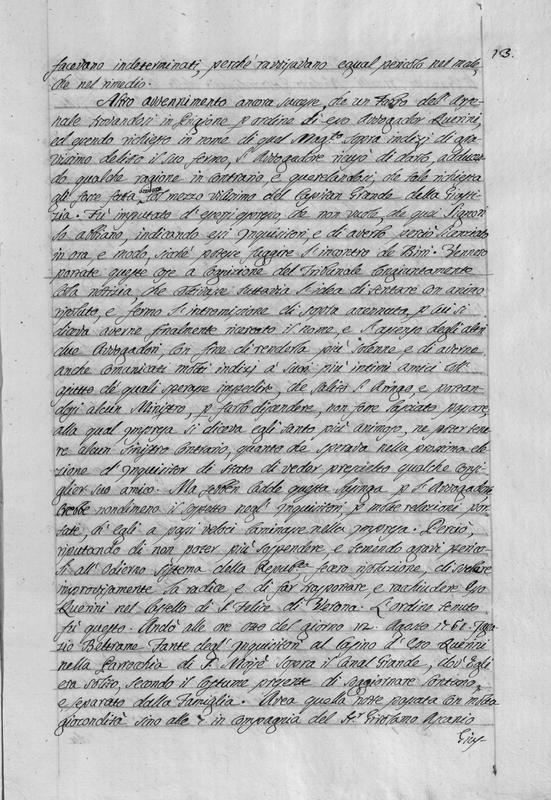 13.
facevano indeterminati, perché ravvisavano egual pericolo nel male,
che nel rimedio.
Altro avvenimento ancora successe, che un Fante dell' Arse-
nale trovandosi in prigione per ordine di esso Avogador Querini,
ed essendo richiesto in nome di quel Mag.to sopra indizj di gra-
vissimo delitto il suo fermo, l' Avogadore ricusò di darlo, adducen-
do qualche ragione in contrario, e querelandosi, che tale richiesta
gli fosse fatta col mezzo vilissimo del Capitan Grande della Giusti-
zia. Fù imputato d' essersi espresso, che non vuole, che quei Signori
lo abbiano, indicando essi Inquisitori, e di averlo perciò licenziato
in ora, e modo, sicché potesse fuggire l' incontro de Birri. Vennero
portate queste cose a cognizione del Tribunale congiuntamente
colla notizia, che coltivasse tuttavia l' idea di tentare con animo
risoluto, e fermo l' intromissione di sopra accennata, p cui si
diceva averne finalmente ricercato il nome, e l' assenso degli altri
due Avogadori, con fine di renderla più solenne, e di averne
anche comunicati molti indizj a suoi più intimi amici coll'
oggetto de quali sperasse impedire, che salisse l' Arrigo, e portan-
dosi alcun Ministro, p farlo discendere, non fosse lasciato passare,
alla qual impresa si diceva egli tanto più animoso, ne poter teme-
re alcun sinistro contrario, quanto che sperava nella prossima ele-
zione d' Inquisitor di Stato di veder prescielto qualche Consi-
glier suo amico. Ma sebben cadde questa lusinga p l' Avogadore
crebbe nondimeno il sospetto negl' Inquisitori, p molte relazioni por-
tate, ch' egli a passi veloci caminasse nella impresa. Perciò,
riputando di non poter più sospendere, e temendo assai perico-
li all' odierno sistema della Republica fecero risoluzione, di svellere
improvisamente la radice, e di far trasportare, e racchiudere esso
Querini nel Castello di S. Felice di Verona. L' ordine tenuto
fù questo. Andò alle ore otto del giorno 12. Agosto 1761. Igna-
zio Beltrame Fante degl' Inquisitori al Casino d' esso Querini
nella Parrochia di S. Moisè sopra il Canal Grande, dov' Egli
era solito, secondo il costume presente di soggiornare lontano,
e separato dalla Famiglia. Avea quella notte passata con molta
giocondità sino alle 7 in compagnia del Sr. Girolamo Ascanio
Gius-